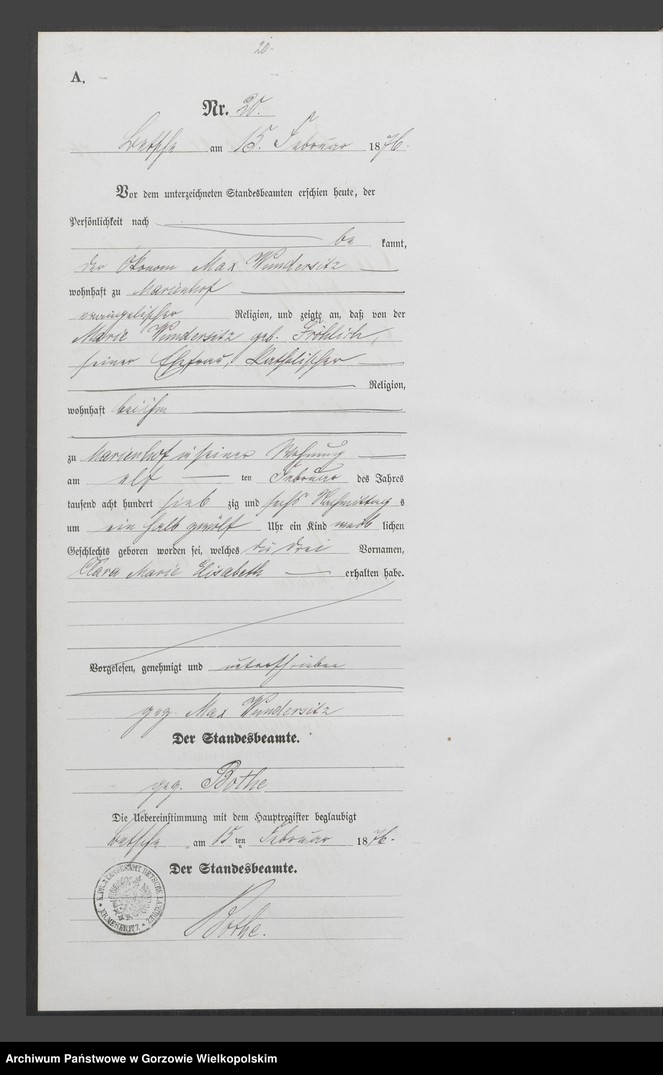 20.
A.
Nr. 20.
Betsche am 15. Februar 1876.
Vor dem unterzeichneten Standesbeamten erschien heute, der
Persönlichkeit nach
be kannt,
der Ökonom Max Wundersitz
wohnhaft zu Marienhof
evangelischer Religion, und zeigte an, daß von der
Marie Wundersitz geb. Fröhlich,
seiner Ehefrau, katholischer
Religion,
wohnhaft bei ihm
zu Marienhof in seiner Wohnung
am elf ten Februar des Jahres
tausend acht hundert sieb zig und sechs Nachmittag s
um ein halb zwölf Uhr ein Kind weib lichen
Geschlechts geboren worden sei, welches die drei Vornamen,
Clara Marie Elisabeth erhalten habe.
Vorgelesen, genehmigt und unterschrieben
gez. Max Wundersitz
Der Standesbeamte.
gez. Bothe
Die Uebereinstimmung mit dem Hauptregister beglaubigt
Betsche am 15 ten Februar 1876.
Der Standesbeamte.
Bothe.
KR. MESERITZ
Archiwum Państwowe w Gorzowie Wielkopolskim